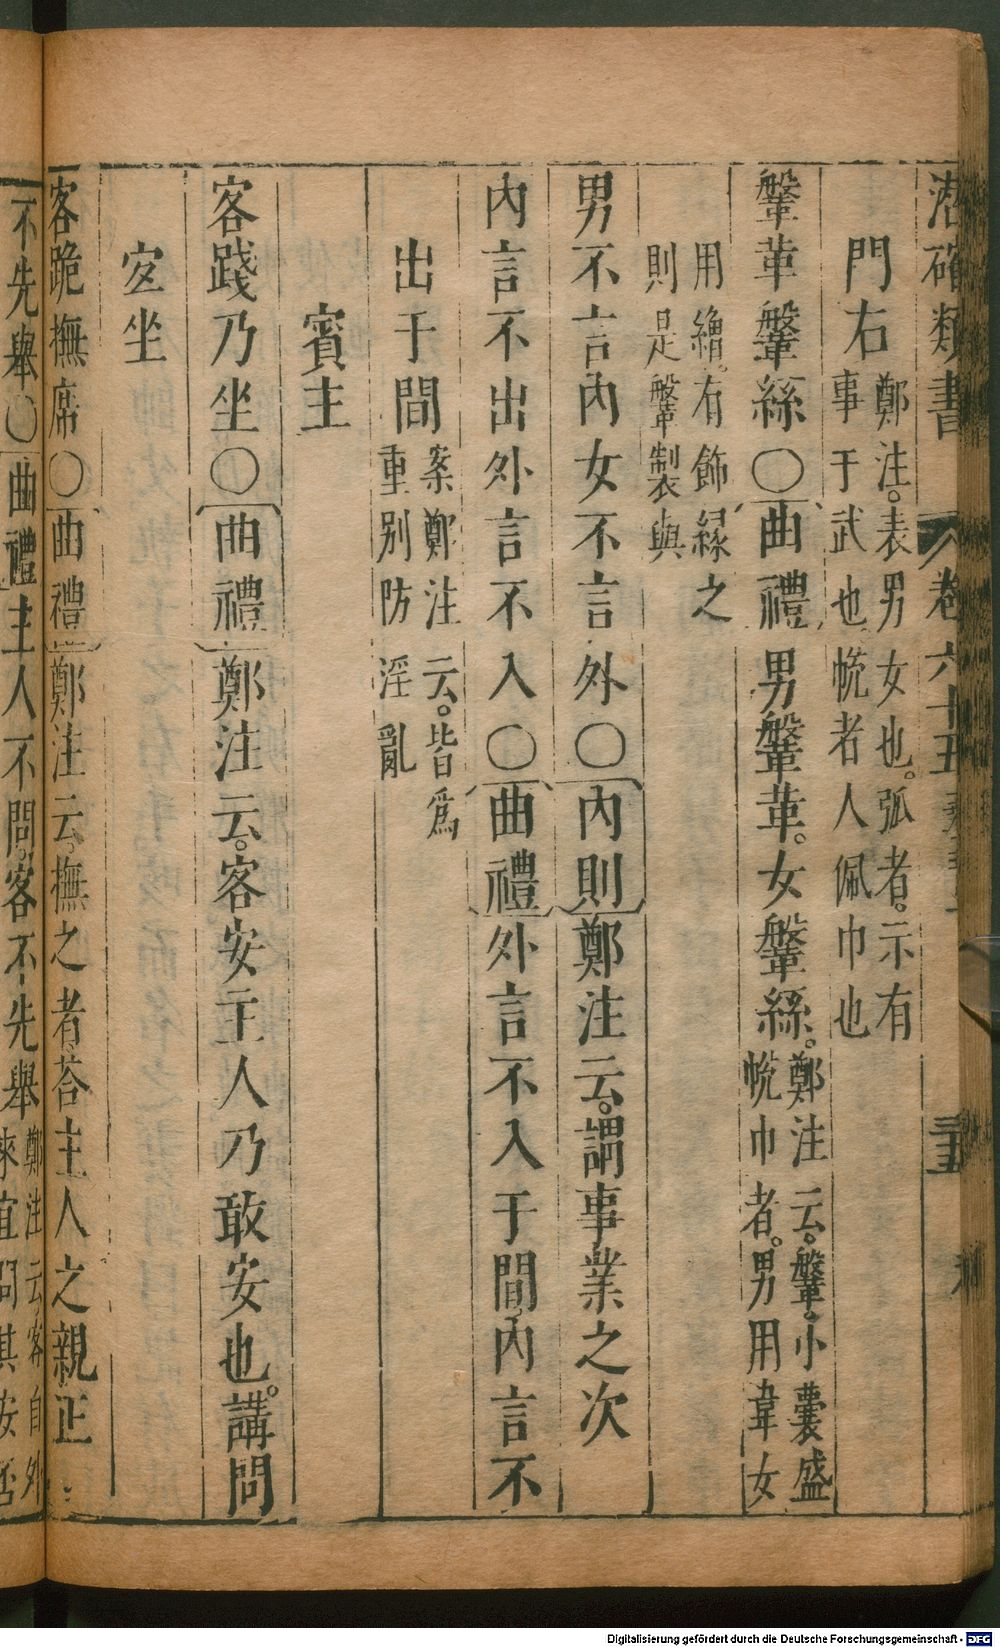 潛確類書 卷六十五
門右
鄭注。表男女也。弧者。示有
事于武也帨者人佩巾也
鞶革鞶絲○曲禮男鞶革。女鞶絲。
鄭注云。鞶。小囊盛
帨巾者。男用韋女
用繒。有飾緣之
則是鞶製與
男不言內女不言外○內則鄭注云。謂事業之次
內言不出外言不入○曲禮外言不入于閫內言不
出于閫
案鄭注云。皆爲
重別防淫亂
賓主
客踐乃坐○曲禮鄭注云。客安主人乃敢安也。講問
宐坐
客跪撫席○曲禮鄭注云。撫之者。荅主人之親正
不先舉○曲禮主人不問。客不先舉
鄭注云客自外
來宜問其安否
Digitalisierung gefördert durch die Deutsche Forschungsgemeinschaft - DFG